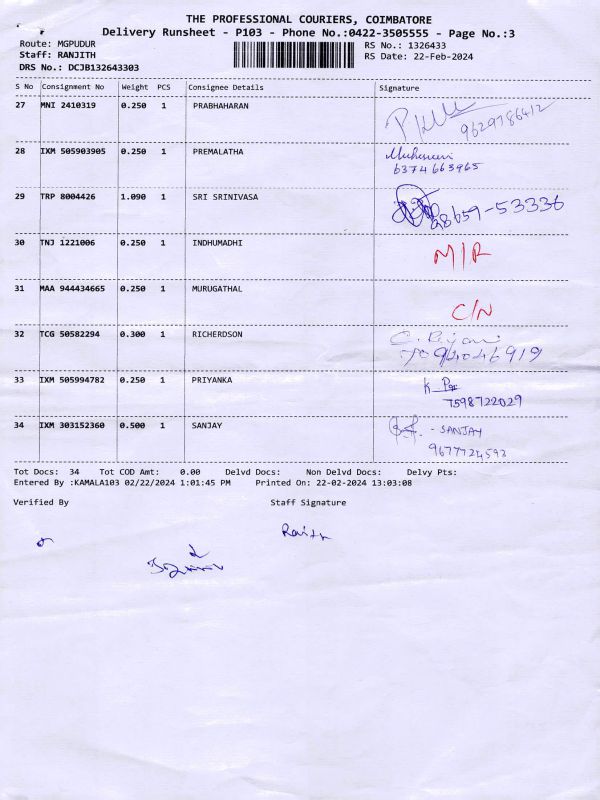 THE PROFESSIONAL COURIERS, COIMBATORE
Delivery Runsheet - P103 - Phone No.:0422-3505555 - Page No.:3
Route: MGPUDUR
RS No.: 1326433
Staff: RANJITH
RS Date: 22-Feb-2024
DRS No.: DCJB132643303
S No Consignment No Weight PCS Consignee Details Signature
27 MNI 2410319 0.250 1 PRABHAHARAN
9629786412
28 IXM 505903905 0.250 1 PREMALATHA
6374663965
29 TRP 8004426 1.090 1 SRI SRINIVASA
98659-53336
30 TNJ 1221006 0.250 1 INDHUMADHI M/R
31 MAA 944434665 0.250 1 MURUGATHAL C/N
32 TCG 50582294 0.300 1 RICHERDSON
33 IXM 505994782 0.250 1 PRIYANKA
7598722029
34 IXM 303152360 0.500 1 SANJAY - SANJAY
9677724592
Tot Docs: 34 Tot COD Amt: 0.00 Delvd Docs: Non Delvd Docs: Delvy Pts:
Entered By :KAMALA103 02/22/2024 1:01:45 PM Printed On: 22-02-2024 13:03:08
Verified By Staff Signature